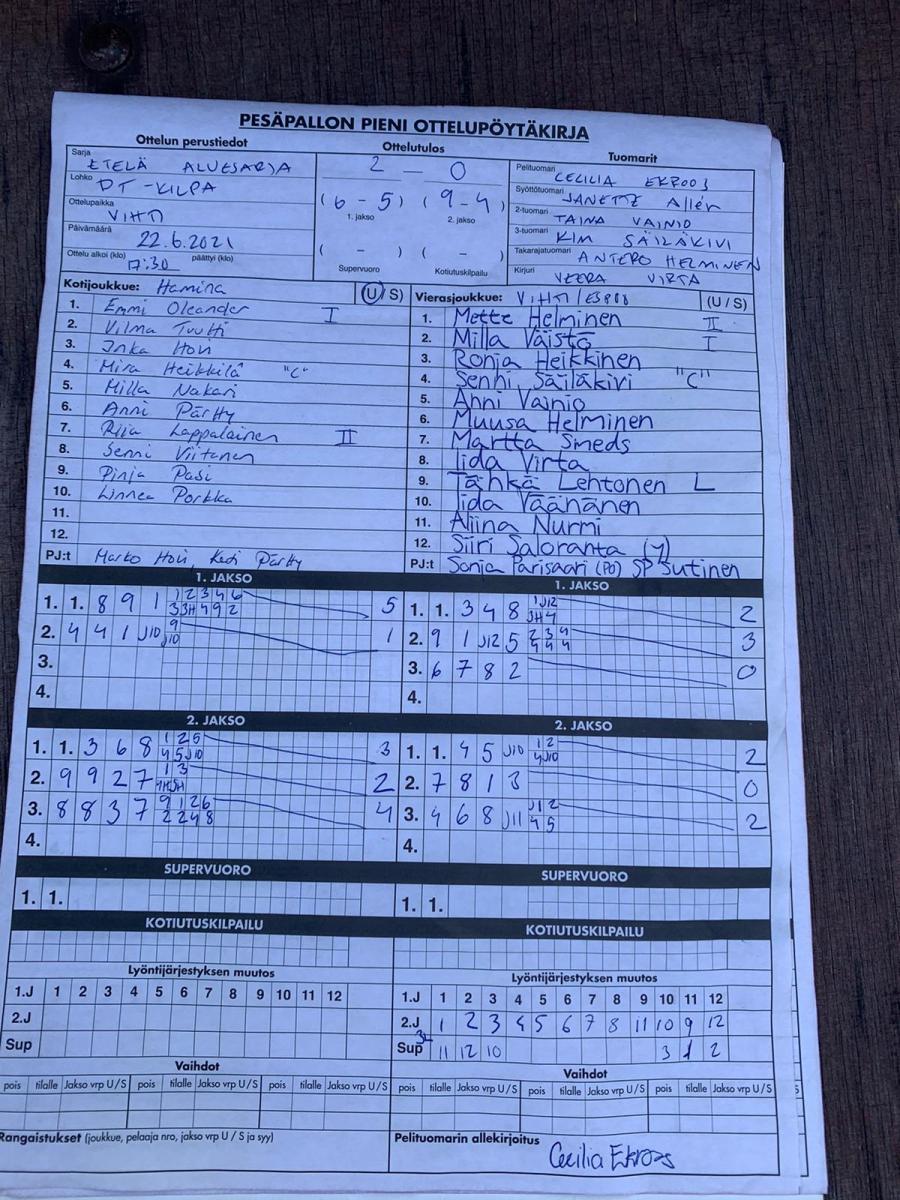 PESÄPALLON PIENI OTTELUPÖYTÄKIRJA
Ottelun perustiedot Ottelutulos Tuomarit
Sarja ETELÄ ALUESARJA
Lohko DT-KILPA
Ottelupaikka VIHTI
Päivämäärä 22.6.2021
Ottelu alkoi (klo) 17:30 päättyi (klo)
2 — 0
(6 - 5) (9 - 4)
1. jakso 2. jakso
( - ) ( - )
Supervuoro Kotiutuskilpailu
Pelituomari CECILIA EKROOS
Syöttötuomari JANETTE Allén
2-tuomari TAINA VAINIO
3-tuomari KIM SÄILÄKIVI
Takarajatuomari ANTERO HELMINEN
Kirjuri VEERA VIRTA
Kotijoukkue: Hamina (U/S)
1. Emmi Oleander I
2. Vilma Tuutti
3. Inka Hovi
4. Mira Heikkilä "C"
5. Milla Nakari
6. Anni Pärtty
7. Riia Lappalainen II
8. Senni Viitanen
9. Pinja Pasi
10. Linnea Porkka
11.
12.
PJ:t Marko Hovi, Kati Pärtty
Vierasjoukkue: VIHTI/ESPOO (U/S)
1. Mette Helminen II
2. Milla Väistö I
3. Ronja Heikkinen
4. Senni Säiläkivi "C"
5. Anni Vainio
6. Muusa Helminen
7. Martta Smeds
8. Iida Virta
9. Tähkä Lehtonen L
10. Iida Väänänen
11. Aliina Nurmi
12. Siiri Saloranta (y)
PJ:t Sonja Parisaari (PÖ) SP Sutinen
1. JAKSO
1. 1. 8 9 1 1 2 3 4 6 5
3 3H 4 9 2
2. 4 4 1 J10 9 1
J10
3.
4.
1. JAKSO
1. 1. 3 4 8 1 J12 2
JH 4
2. 9 1 J12 5 2 3 4 3
4 4 4
3. 6 7 8 2 0
4.
2. JAKSO
1. 1. 3 6 8 1 2 5 3
4 5 J10
2. 9 9 2 7 1 3 2
4H 5H
3. 8 8 3 7 9 1 2 6 4
2 2 4 8
4.
2. JAKSO
1. 1. 4 5 J10 1 2 2
4 J10
2. 7 8 1 3 0
3. 4 6 8 J11 J1 2 2
4 5
4.
SUPERVUORO
1. 1.
SUPERVUORO
1. 1.
KOTIUTUSKILPAILU
KOTIUTUSKILPAILU
Lyöntijärjestyksen muutos
1.J 1 2 3 4 5 6 7 8 9 10 11 12
2.J
Sup
Lyöntijärjestyksen muutos
1.J 1 2 3 4 5 6 7 8 9 10 11 12
2.J 1 2 3 4 5 6 7 8 11 10 9 12
Sup 11 12 10 3 1 2
Vaihdot
pois tilalle Jakso vrp U/S pois tilalle Jakso vrp U/S pois tilalle Jakso vrp U/S
Vaihdot
pois tilalle Jakso vrp U/S pois tilalle Jakso vrp U/S pois tilalle Jakso vrp U/S
Rangaistukset (joukkue, pelaaja nro, jakso vrp U / S ja syy)
Pelituomarin allekirjoitus
Cecilia Ekroos